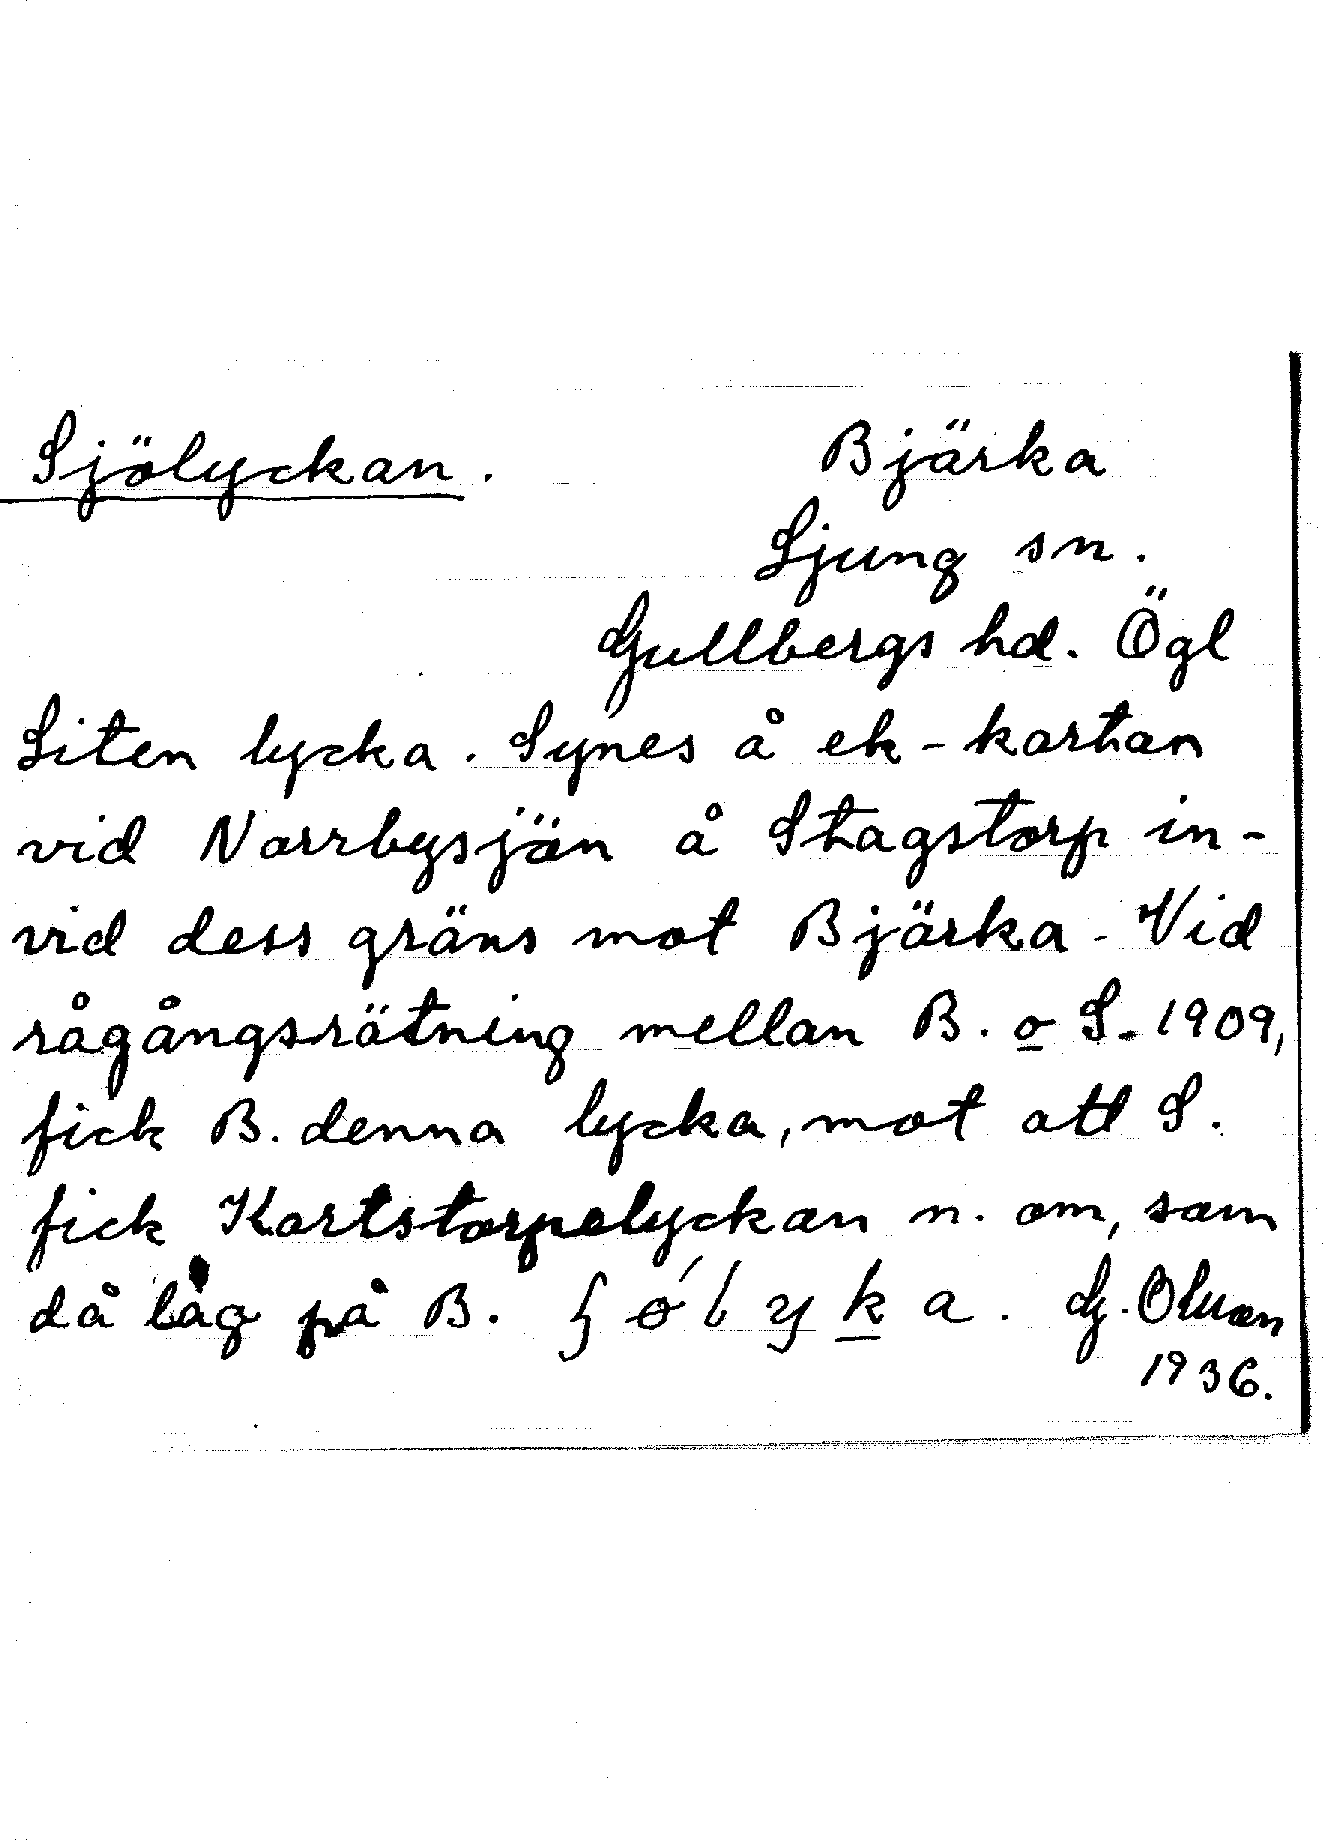 Sjölyckan. Bjärka
Ljung sn.
Gullbergs hd. Ögl
Liten lycka. Synes å ek-kartan
vid Norrbysjön å Stagstorp in-
vid dess gräns mot Bjärka. Vid
rågångsrätning mellan B. o S. 1909,
fick B. denna lycka, mot att S.
fick Kortstorpelyckan n. om, som
då låg på B. G. Olson
1936.